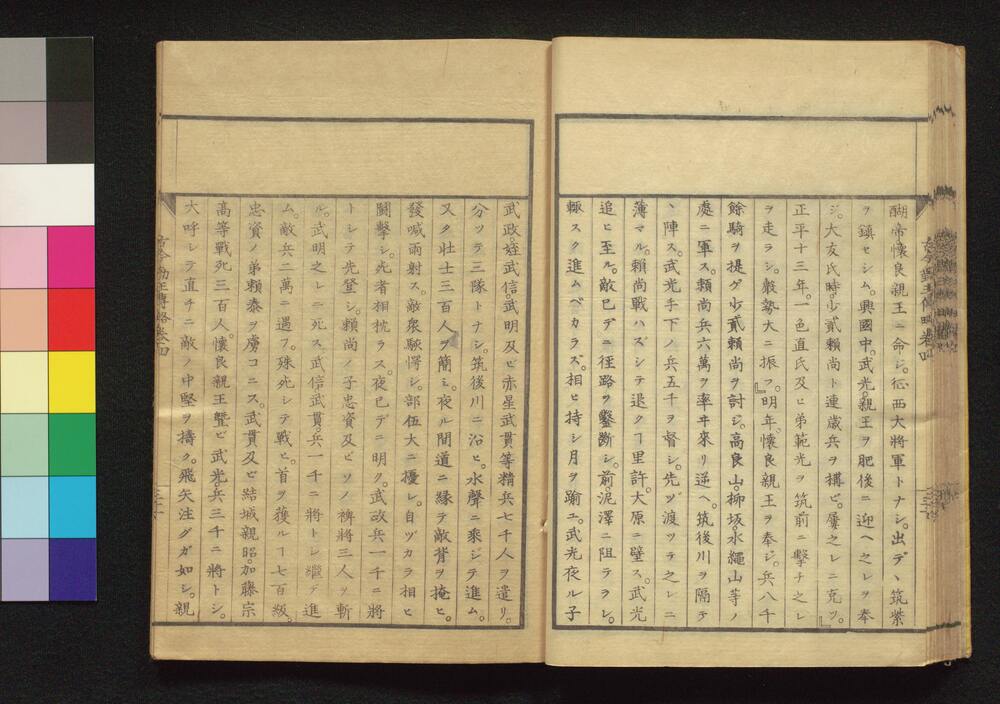 醐帝懷良親王ニ命シ。征西大將軍トナシ。出デヽ筑紫
ヲ鎭セシム。興國中。武光。親王ヲ肥後ニ迎ヘ之レヲ奉
ジ。大友氏時。少貳賴尚ト連歲兵ヲ構ヒ。屢之レニ克ツ。
正平十三年。一色直氏及ヒ弟範光ヲ筑前ニ擊チ之レ
ヲ走ラシ。殺勢大ニ振フ。』明年。懷良親王ヲ奉ジ。兵八千
餘騎ヲ提ゲ少貳賴尚ヲ討ジ。高良山。栁坂。水繩山等ノ
處ニ軍ス。賴尚兵六萬ヲ率ヰ來リ逆ヘ。筑後川ヲ隔テ
ヽ陣ス。武光手下ノ兵五千ヲ督シ。先ヅ渡ツラ之レニ
薄マル。賴尚戰ハズシテ退クヿ里許。大原ニ壁ス。武光
追ヒ至ル。敵已デニ徑路ヲ鑿斷シ。前泥澤ニ阻テラレ。
輙スク進ムベカラズ。相ヒ持シ月ヲ踰ユ。武光夜ル子
武政。姪武信。武明及ビ赤星武貫等精兵七千人ヲ遣リ。
分ツテ三隊トナシ。筑後川ニ沿ヒ。水聲ニ乘ジテ進ム。
又タ壮士三百人ヲ簡ミ。夜ル間道ニ縁テ敵背ヲ掩ヒ。
發喊雨射ス。敵衆駭愕シ。部伍大ニ擾レ。自ヅカラ相ヒ
鬪擊シ。死者相枕ラス。夜已デニ明ク。武政兵一千ニ將
トシテ先登シ。賴尚ノ子忠資及ビソノ裨將三人ヲ斬
ル。武明之レニ死ス。武信武貫。兵一千ニ將トレ繼デ進
ム。敵兵二萬ニ遇フ。殊死シテ戰ヒ。首ヲ獲ルヿ七百級。
忠資ノ弟賴泰ヲ虜コニス。武貫及ビ結城親昭。加藤宗
高等戰死三百人。懷良親王曁ビ武光。兵三千ニ將トシ。
大呼シラ直チニ敵ノ中堅ヲ擣ク。飛矢注グガ如シ。親
古今勤王傳略卷四